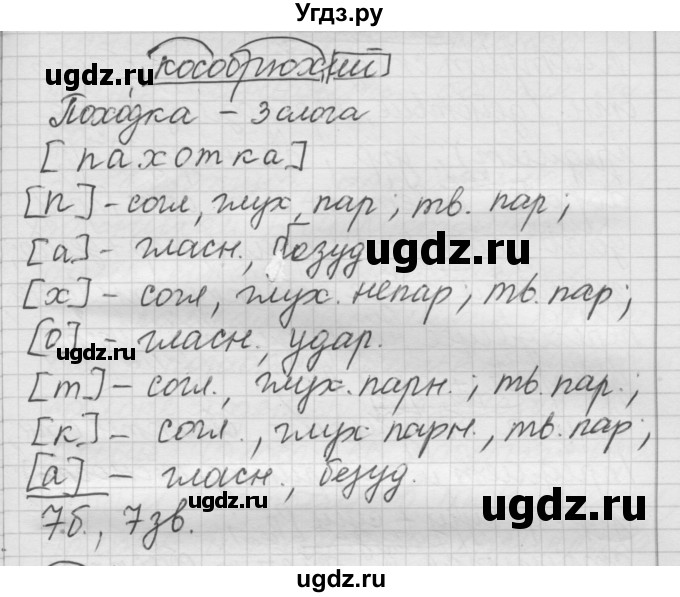 Угдз.ру
кособрюхий
ugdz.ru
Походка – 3 слога
ugdz.ru
[пахотка]
[п] – согл, глух, пар; тв. пар;
[а] – гласн., безуд
ugdz.ru
[х] – согл, глух. непар; тв. пар;
[о] – гласн., удар.
ugdz.ru
[т] – согл., глух. парн.; тв. пар.;
[к] – согл., глух парн., тв. пар;
[а] – гласн., безуд.
ugdz.ru
7 б., 7 зв.
ugdz.ru
ugdz.ru